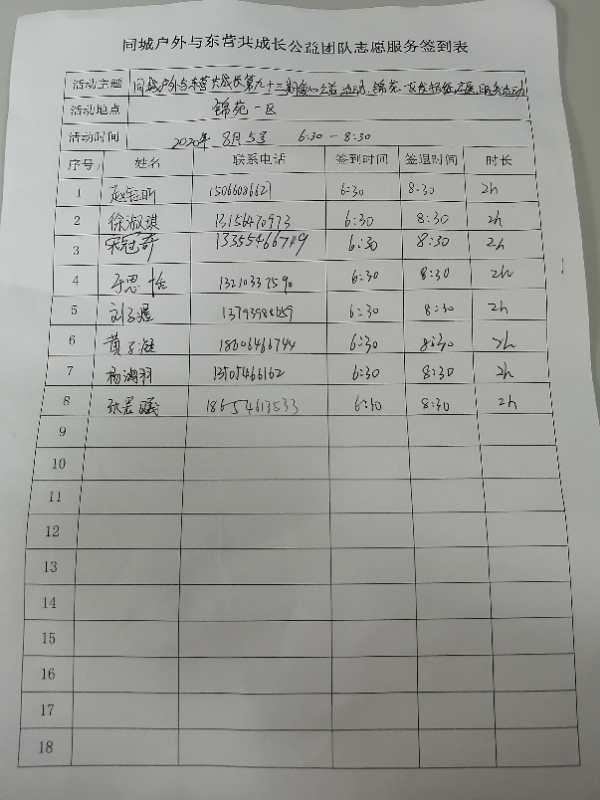 同城户外与东营共成长公益团队志愿服务签到表
活动主题 同城户外与东营共成长第九十三期 公益活动 锦苑一区 志愿服务活动
活动地点 锦苑一区
活动时间 2020年8月5号 6:30-8:30
序号 姓名 联系电话 签到时间 签退时间 时长
1 6:30 8:30 2h
2 徐淑琪 13156470973 6:30 8:30 2h
3 宋冠奇 6:30 8:30 2h
4 于思怡 6:30 8:30 2h
5 6:30 8:30 2h
6 18606466744 6:30 8:30 2h
7 6:30 8:30 2h
8 18654613533 6:30 8:30 2h
9
10
11
12
13
14
15
16
17
18